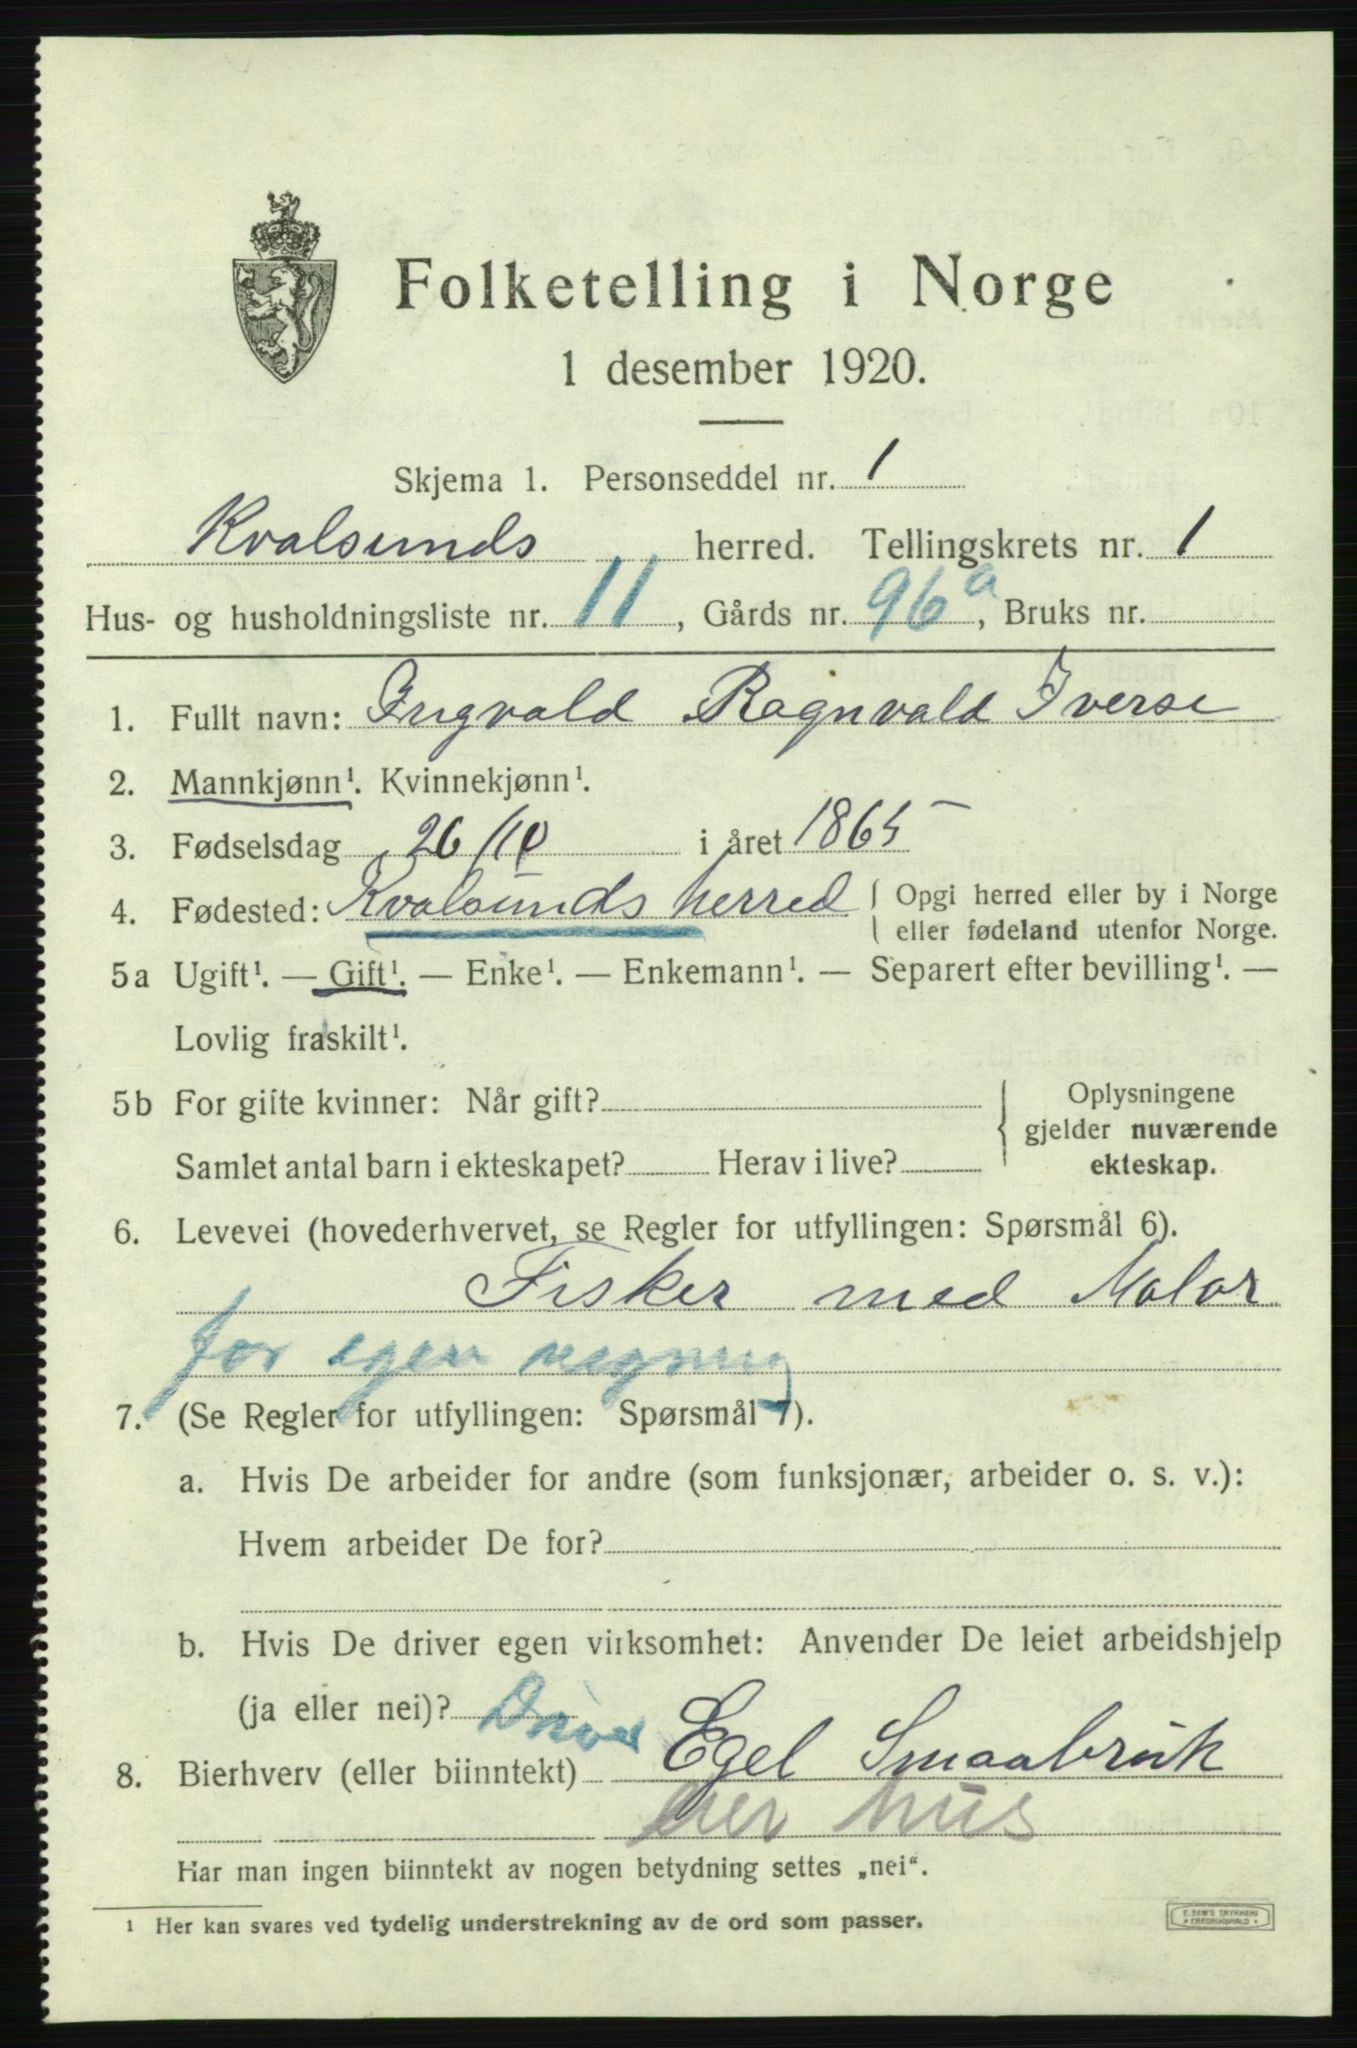 Folketelling i Norge
1 desember 1920.
Skjema 1. Personseddel nr. 1
Kvalsunds herred. Tellingskrets nr. 1
Hus- og husholdningsliste nr. 11, Gårds nr. 96a, Bruks nr.
1. Fullt navn: Ingvald Ragnvald Iverse
2. Mannkjønn¹. Kvinnekjønn¹.
3. Fødselsdag 26/10 i året 1865
4. Fødested: Kvalsunds herred { Opgi herred eller by i Norge
eller fødeland utenfor Norge.
5a Ugift¹. — Gift¹. — Enke¹. — Enkemann¹. — Separert efter bevilling¹. —
Lovlig fraskilt¹.
5b For gifte kvinner: Når gift? { Oplysningene
gjelder nuværende
Samlet antal barn i ekteskapet? Herav i live? ekteskap.
6. Levevei (hovederhvervet, se Regler for utfyllingen: Spørsmål 6).
Fisker med Motor
for egen regning
7. (Se Regler for utfyllingen: Spørsmål 7).
a. Hvis De arbeider for andre (som funksjonær, arbeider o. s. v.):
Hvem arbeider De for?
b. Hvis De driver egen virksomhet: Anvender De leiet arbeidshjelp
(ja eller nei)?
8. Bierhverv (eller biinntekt) Driver Eget Smaabruk
hus
Har man ingen biinntekt av nogen betydning settes „nei“.
¹ Her kan svares ved tydelig understrekning av de ord som passer.
E. SEM'S TRYKKERI
FREDRIKSHALD